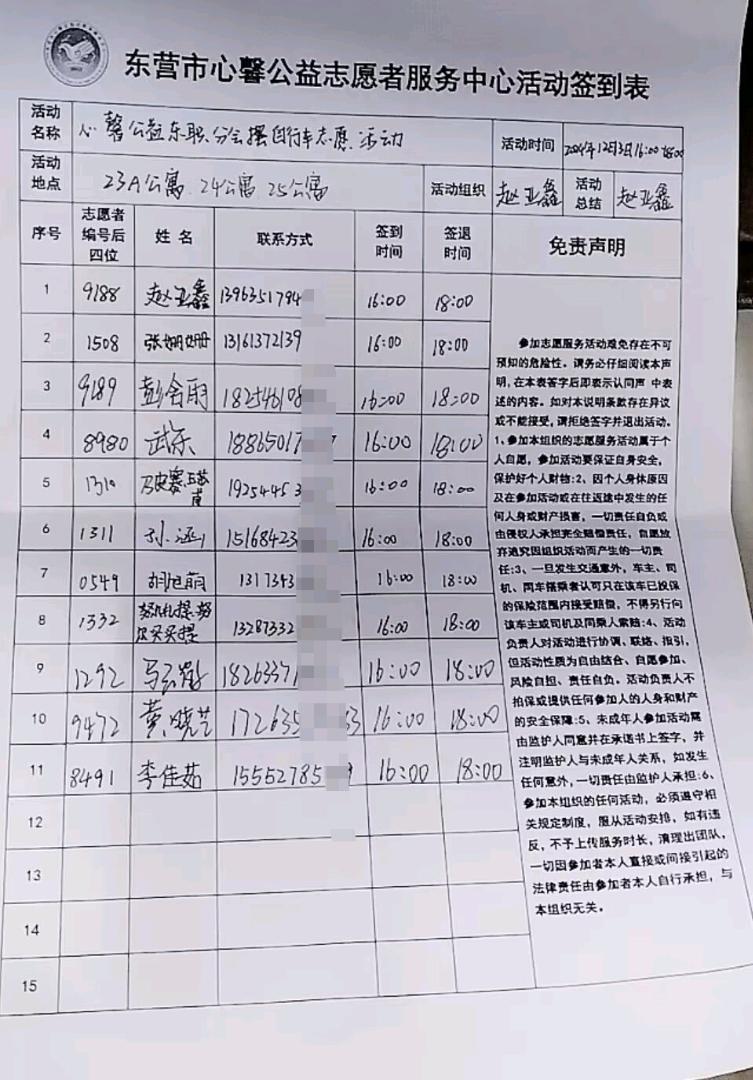 东营市心馨公益志愿者服务中心活动签到表
活动名称 心馨公益东职分会摆自行车志愿活动 活动时间 2024年12月3日16:00 18:00
活动地点 23A公寓 24公寓 25公寓 活动组织 赵亚鑫 活动总结 赵亚鑫
序号 志愿者编号后四位 姓名 联系方式 签到时间 签退时间 免责声明
1 9188 赵亚鑫 1396351794 16:00 18:00
2 1508 张姗姗 13161372139 16:00 18:00
3 9189 彭会雨 182546108 16:00 18:00
4 8980 武乐 18865017 16:00 18:00
5 1310 19254453 16:00 18:00
6 1311 孙涵 15168423 16:00 18:00
7 0549 胡旭萌 1317343 16:00 18:00
8 1332 13287332 16:00 18:00
9 1292 马云 18263371 16:00 18:00
10 9472 黄晓艺 172635 16:00 18:00
11 8491 李佳茹 15552785 16:00 18:00
12
13
14
15
参加志愿服务活动难免存在不可
预知的危险性。请务必仔细阅读本声
明,在本表签字后即表示认同声 中表
述的内容。如对本说明条款存在异议
或不能接受,请拒绝签字并退出活动。
1、参加本组织的志愿服务活动属于个
人自愿,参加活动要保证自身安全,
保护好个人财物:2、因个人身体原因
及在参加活动或在往返途中发生的任
何人身或财产损害,一切责任自负或
由侵权人承担完全赔偿责任,自愿放
弃追究因组织活动而产生的一切责
任:3、一旦发生交通意外,车主、司
机、同车搭乘者认可只在该车已投保
的保险范围内接受赔偿,不得另行向
该车主或司机及同乘人索赔:4、活动
负责人对活动进行协调、联络、指引,
但活动性质为自由结合、自愿参加、
风险自担、责任自负。活动负责人不
担保或提供任何参加人的人身和财产
的安全保障:5、未成年人参加活动需
由监护人同意并在承诺书上签字,并
注明监护人与未成年人关系,如发生
任何意外,一切责任由监护人承担:6、
参加本组织的任何活动,必须遵守相
关规定制度,服从活动安排,如有违
反,不予上传服务时长,清理出团队,
一切因参加者本人直接或间接引起的
法律责任由参加者本人自行承担,与
本组织无关。